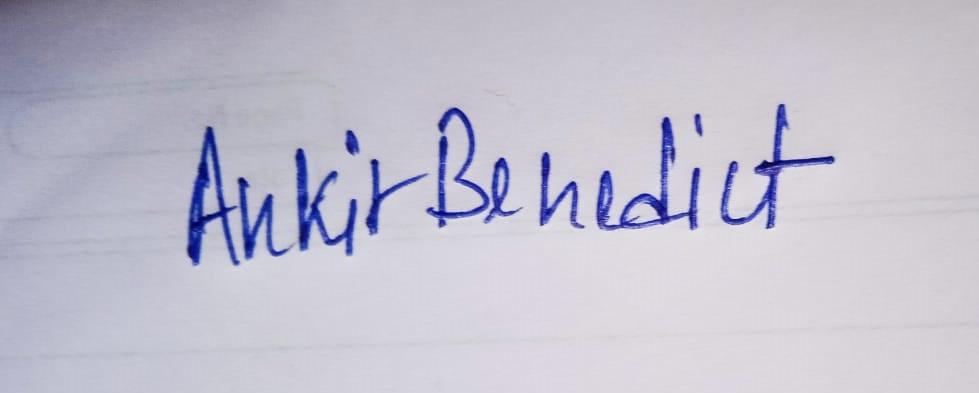 Ankit Benedict